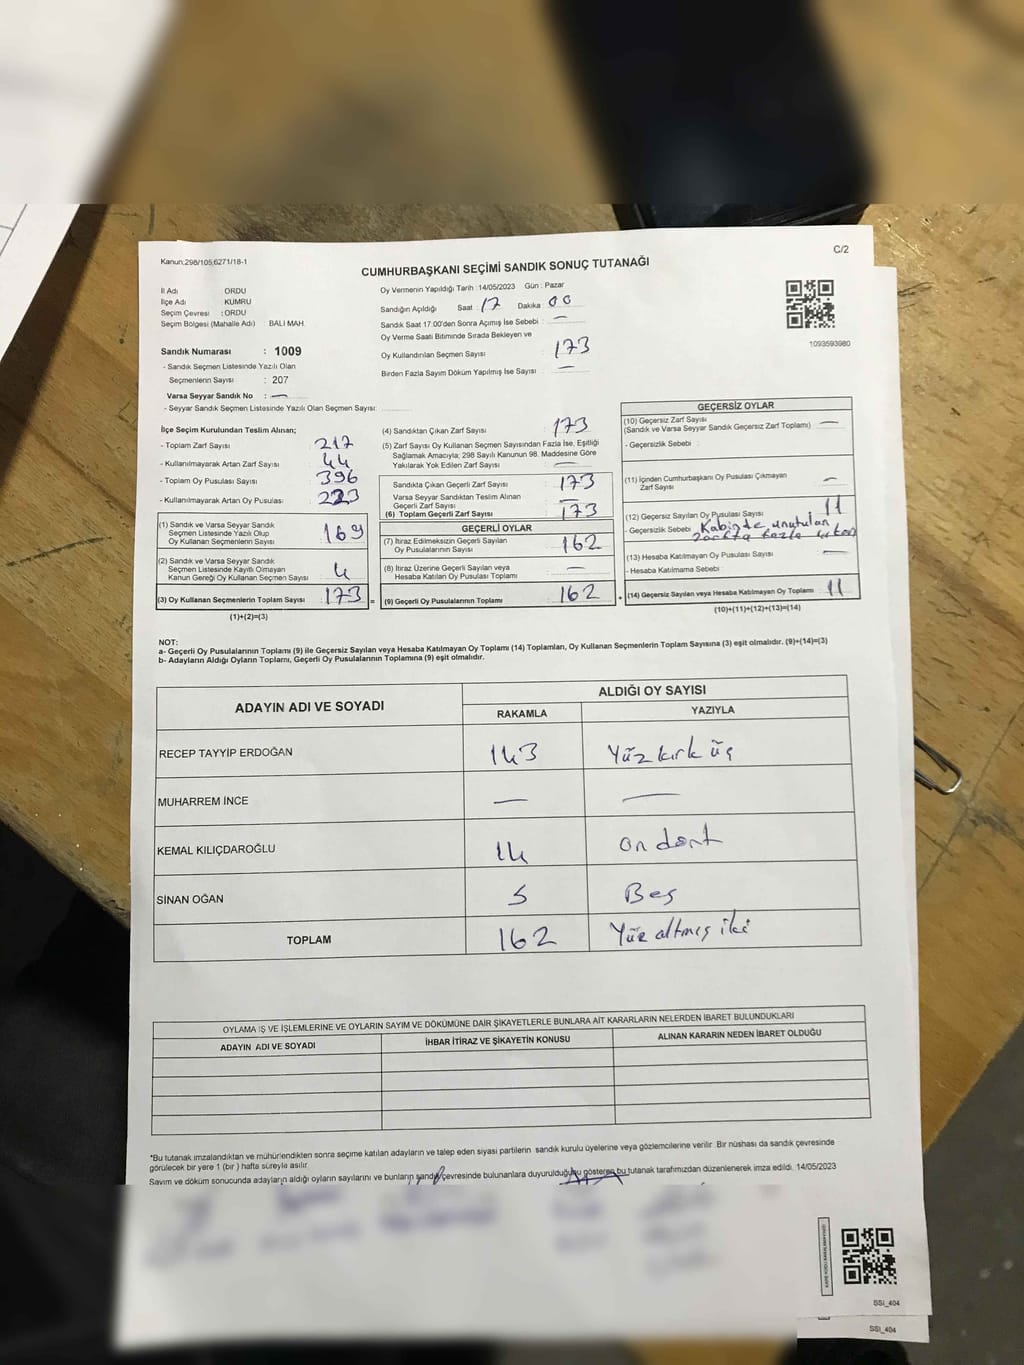 C/2
Kanun;298/105;6271/18-1
CUMHURBAŞKANI SEÇİMİ SANDIK SONUÇ TUTANAĞI
İl Adı : ORDU
İlçe Adı KUMRU
Seçim Çevresi : ORDU
Seçim Bölgesi (Mahalle Adı) BALI MAH.
Sandık Numarası : 1009
- Sandık Seçmen Listesinde Yazılı Olan
Seçmenlerin Sayısı : 207
Varsa Seyyar Sandık No : —
- Seyyar Sandık Seçmen Listesinde Yazılı Olan Seçmen Sayısı:
Oy Vermenin Yapıldığı Tarih : 14/05/2023 Gün : Pazar
Sandığın Açıldığı Saat : 17 Dakika : 00
Sandık Saat 17:00'den Sonra Açımış İse Sebebi : —
Oy Verme Saati Bitiminde Sırada Bekleyen ve
Oy Kullandırılan Seçmen Sayısı : 173
Birden Fazla Sayım Döküm Yapılmış İse Sayısı : —
1093593980
İlçe Seçim Kurulundan Teslim Alınan;
- Toplam Zarf Sayısı : 217
- Kullanılmayarak Artan Zarf Sayısı : 44
- Toplam Oy Pusulası Sayısı : 396
- Kullanılmayarak Artan Oy Pusulası : 223
(1) Sandık ve Varsa Seyyar Sandık
Seçmen Listesinde Yazılı Olup
Oy Kullanan Seçmenlerin Sayısı : 169
(2) Sandık ve Varsa Seyyar Sandık
Seçmen Listesinde Kayıtlı Olmayan
Kanun Gereği Oy Kullanan Seçmen Sayısı : 4
(3) Oy Kullanan Seçmenlerin Toplam Sayısı : 173 =
(1)+(2)=(3)
(4) Sandıktan Çıkan Zarf Sayısı : 173
(5) Zarf Sayısı Oy Kullanan Seçmen Sayısından Fazla İse, Eşitliği
Sağlamak Amacıyla; 298 Sayılı Kanunun 98. Maddesine Göre
Yakılarak Yok Edilen Zarf Sayısı : —
Sandıkta Çıkan Geçerli Zarf Sayısı : 173
Varsa Seyyar Sandıktan Teslim Alınan
Geçerli Zarf Sayısı : —
(6) Toplam Geçerli Zarf Sayısı : 173
GEÇERLİ OYLAR
(7) İtiraz Edilmeksizin Geçerli Sayılan
Oy Pusulalarının Sayısı : 162
(8) İtiraz Üzerine Geçerli Sayılan veya
Hesaba Katılan Oy Pusulası Toplamı : —
(9) Geçerli Oy Pusulalarının Toplamı : 162 +
GEÇERSİZ OYLAR
(10) Geçersiz Zarf Sayısı
(Sandık ve Varsa Seyyar Sandık Geçersiz Zarf Toplamı) : —
- Geçersizlik Sebebi :
(11) İçinden Cumhurbaşkanı Oy Pusulası Çıkmayan
Zarf Sayısı : —
(12) Geçersiz Sayılan Oy Pusulası Sayısı : 11
- Geçersizlik Sebebi : Kabinde unutulan
fazla
(13) Hesaba Katılmayan Oy Pusulası Sayısı : —
- Hesaba Katılmama Sebebi :
(14) Geçersiz Sayılan veya Hesaba Katılmayan Oy Toplamı : 11
(10)+(11)+(12)+(13)=(14)
NOT:
a- Geçerli Oy Pusulalarının Toplamı (9) ile Geçersiz Sayılan veya Hesaba Katılmayan Oy Toplamı (14) Toplamları, Oy Kullanan Seçmenlerin Toplam Sayısına (3) eşit olmalıdır. (9)+(14)=(3)
b- Adayların Aldığı Oyların Toplamı, Geçerli Oy Pusulalarının Toplamına (9) eşit olmalıdır.
ADAYIN ADI VE SOYADI
ALDIĞI OY SAYISI
RAKAMLA YAZIYLA
RECEP TAYYİP ERDOĞAN 143 Yüz kırk üç
MUHARREM İNCE — —
KEMAL KILIÇDAROĞLU 14 on dört
SİNAN OĞAN 5 Beş
TOPLAM 162 Yüz altmış iki
OYLAMA İŞ VE İŞLEMLERİNE VE OYLARIN SAYIM VE DÖKÜMÜNE DAİR ŞİKAYETLERLE BUNLARA AİT KARARLARIN NELERDEN İBARET BULUNDUKLARI
ADAYIN ADI VE SOYADI İHBAR İTİRAZ VE ŞİKAYETİN KONUSU ALINAN KARARIN NEDEN İBARET OLDUĞU
*Bu tutanak imzalandıktan ve mühürlendikten sonra seçime katılan adayların ve talep eden siyasi partilerin sandık kurulu üyelerine veya gözlemcilerine verilir. Bir nüshası da sandık çevresinde
görülecek bir yere 1 (bir ) hafta süreyle asılır.
Sayım ve döküm sonucunda adayların aldığı oyların sayılarını ve bunların sandık çevresinde bulunanlara duyurulduğunu gösteren bu tutanak tarafımızdan düzenlenerek imza edildi. 14/05/2023
SSİ_404
SSİ_404